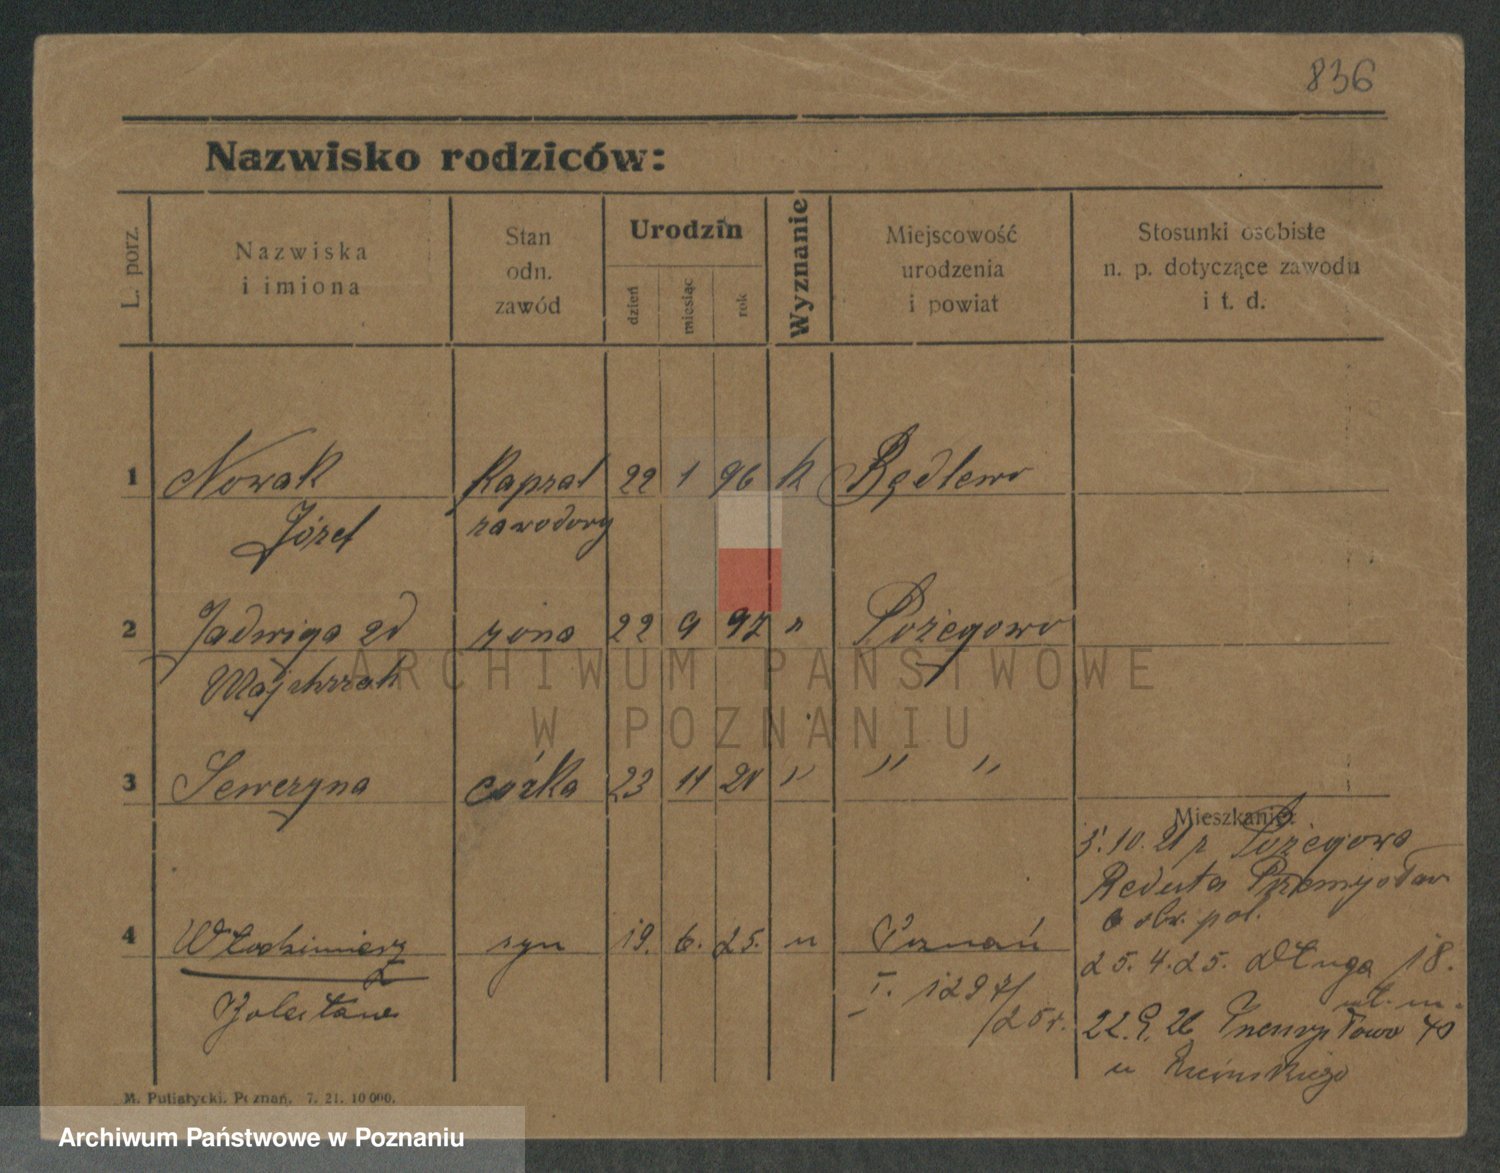 836
Nazwisko rodziców:
L. porz.
Nazwiska
i imiona
Stan
odn.
zawód
Urodzin
dzień
miesiąc
rok
Wyznanie
Miejscowość
urodzenia
i powiat
Stosunki osobiste
n. p. dotyczące zawodu
i t. d.
1 Nowak Kapral 22 1 96 k Będlewo
Józef zawodowy
2 Jadwiga zd żona 22 9 97 " Pożegowo
Wojchrzak
ARCHIWUM PAŃSTWOWE
W POZNANIU
3 Seweryna córka 23 11 20 " " "
Mieszkanie:
5.10.21 z Pożegowa
Reduta Przemysław
6 obr. pol.
4 Włodzimierz syn 19. 6. 25. " Poznań
25.4.25. Długa 18.
Bolesław
I. 1297/
/25r.
22.9.26 Przemysłowa 40
u
M. Putiatycki, Poznań. 7. 21. 10 000.
Archiwum Państwowe w Poznaniu